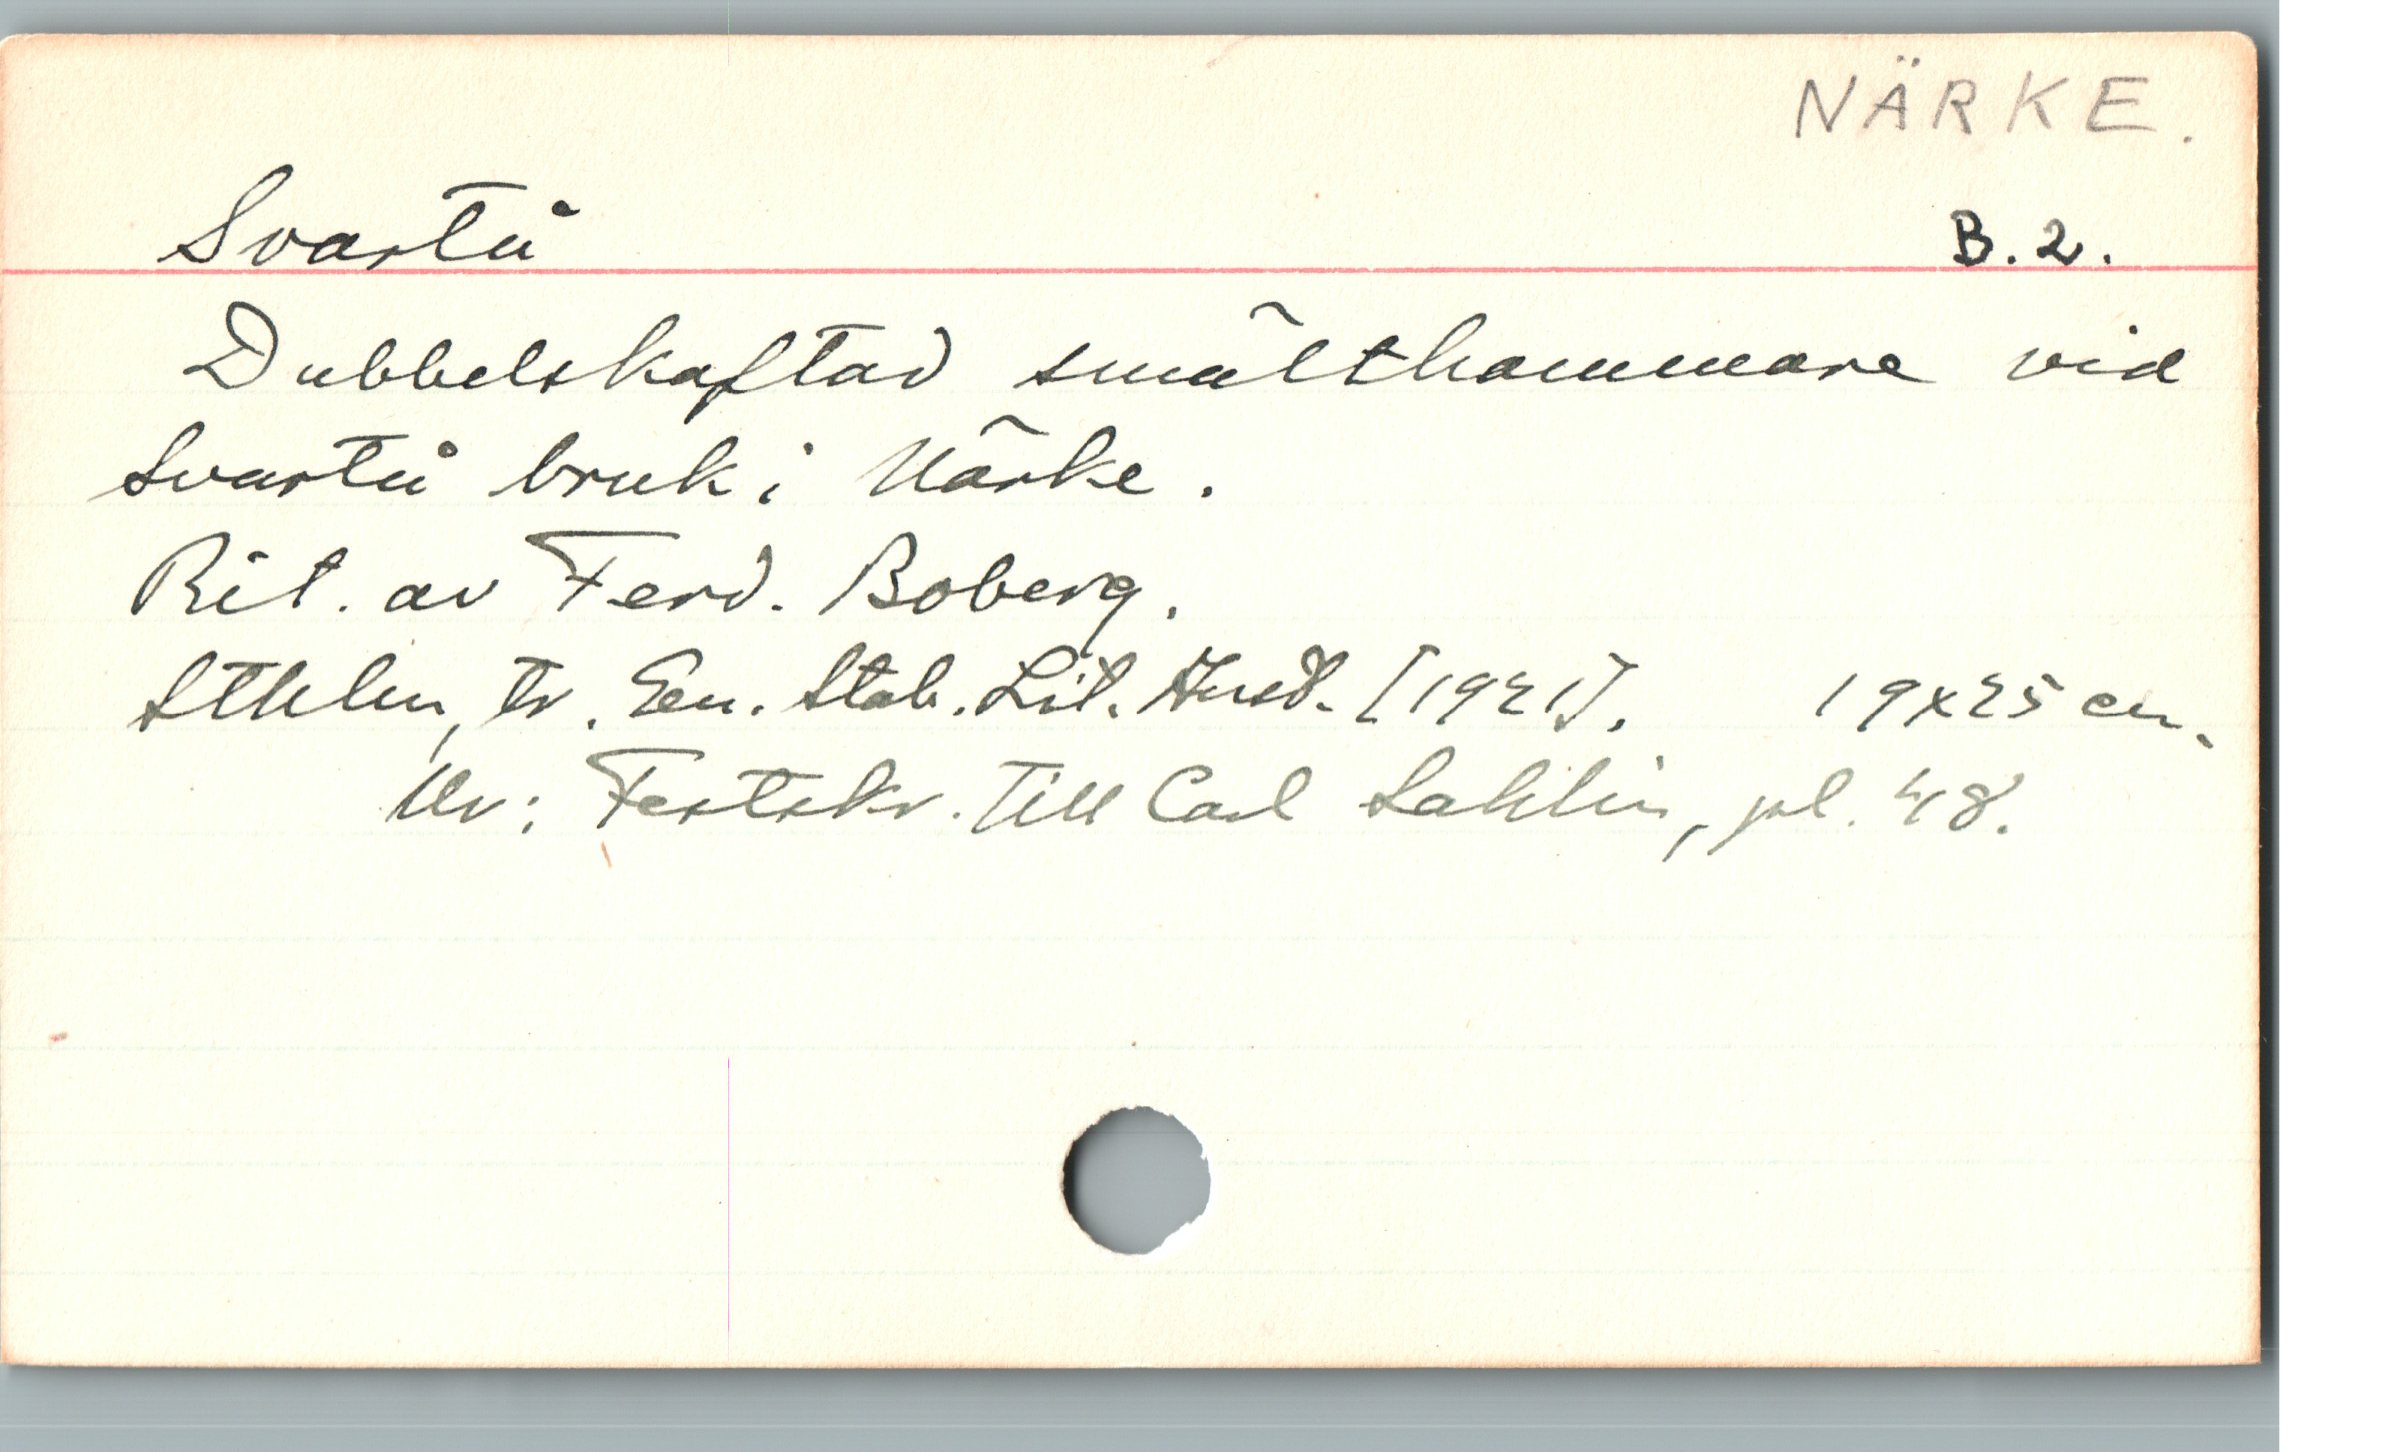 NÄRKE.
Svartå B.2.
Dubbelskaftad smälthammare vid
Svartå bruk i Närke.
Rit. av Ferd. Boberg.
Sthlm, tr. Gen. Stab. Lit. Anst. [1921]. 19x25 cm.
Ur: Festskr. till Carl Sahlin, pl. 48.